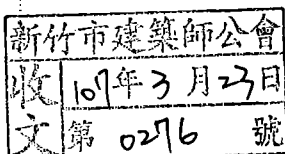 新竹市建築師公會
收文
107年3月23日
第 0276 號